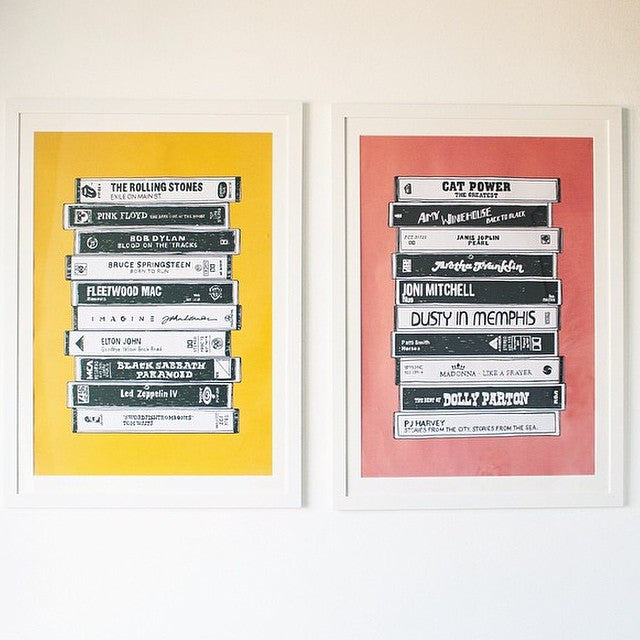 THE ROLLING STONES
EXILE ON MAIN ST.
PINK FLOYD THE DARK SIDE OF THE MOON
BOB DYLAN
BLOOD ON THE TRACKS
BRUCE SPRINGSTEEN
BORN TO RUN
FLEETWOOD MAC
Rumours
IMAGINE John Lennon
ELTON JOHN
Goodbye Yellow Brick Road
MCA
BLACK SABBATH
PARANOID
Led Zeppelin IV
"SWORDFISHTROMBONES"
TOM WAITS
CAT POWER
THE GREATEST
AMY WINEHOUSE BACK TO BLACK
JANIS JOPLIN
PEARL
Aretha Franklin
JONI MITCHELL
Blue
DUSTY IN MEMPHIS
Patti Smith
Horses
MADONNA - LIKE A PRAYER
THE BEST OF DOLLY PARTON
PJ HARVEY
STORIES FROM THE CITY, STORIES FROM THE SEA.